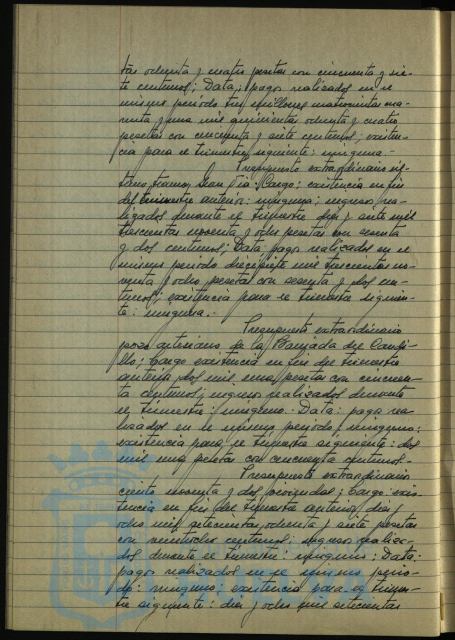 tas ochenta y cuatro pesetas con cincuenta y sie-
te centimos; Data; pagos realizados en el
mismo periodo tres millones cuatrocientas cua-
renta y una mil quinientas ochenta y cuatro
pesetas con cincuenta y siete centimos; existen-
cia para el trimestre siguiente: ninguna.
Presupuesto extraordinario
Gran Via: Cargo: existencia en fin
del trimestre anterior: ninguna; ingresos rea-
lizados durante el trimestre diez y siete mil
trescientas noventa y ocho pesetas con sesenta
y dos centimos; Data pagos realizados en el
mismo periodo diecisiete mil trescientas no-
venta y ocho pesetas con sesenta y dos cen-
timos; existencia para el trimestre siguien-
te: ninguna.
Presupuesto extraordinario
pozo artesiano de la Barriada del Caudi-
llo; Cargo existencia en fin del trimestre
anterior dos mil una pesetas con cincuen-
ta centimos; ingresos realizados durante
el trimestre: ninguno. Data: pagos rea-
lizados en el mismo periodo, ninguno;
existencia para el trimestre siguiente: dos
mil una pesetas con cincuenta centimos.
Presupuesto extraordinario
ciento noventa y dos viviendas; Cargo: exis-
tencia en fin del trimestre anterior, diez y
ocho mil setecientas ochenta y siete pesetas
con veintiocho centimos; ingresos realiza-
dos durante el trimestre: ninguno; Data:
pagos realizados en el mismo perio-
do: ninguno; existencia para el trimes-
tre siguiente: diez y ocho mil setecientas